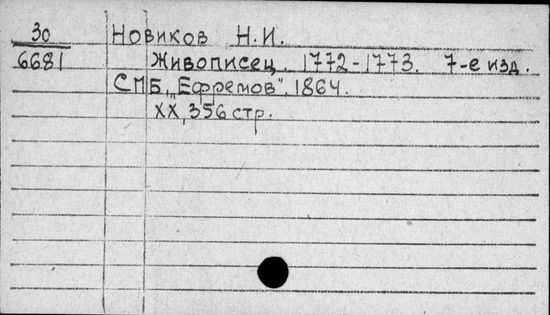 30 Новиков Н.И.
6681 Живописец. 1772-1773. 7-е изд.
СПБ, „Ефремов", 1864.
XX, 356 стр.